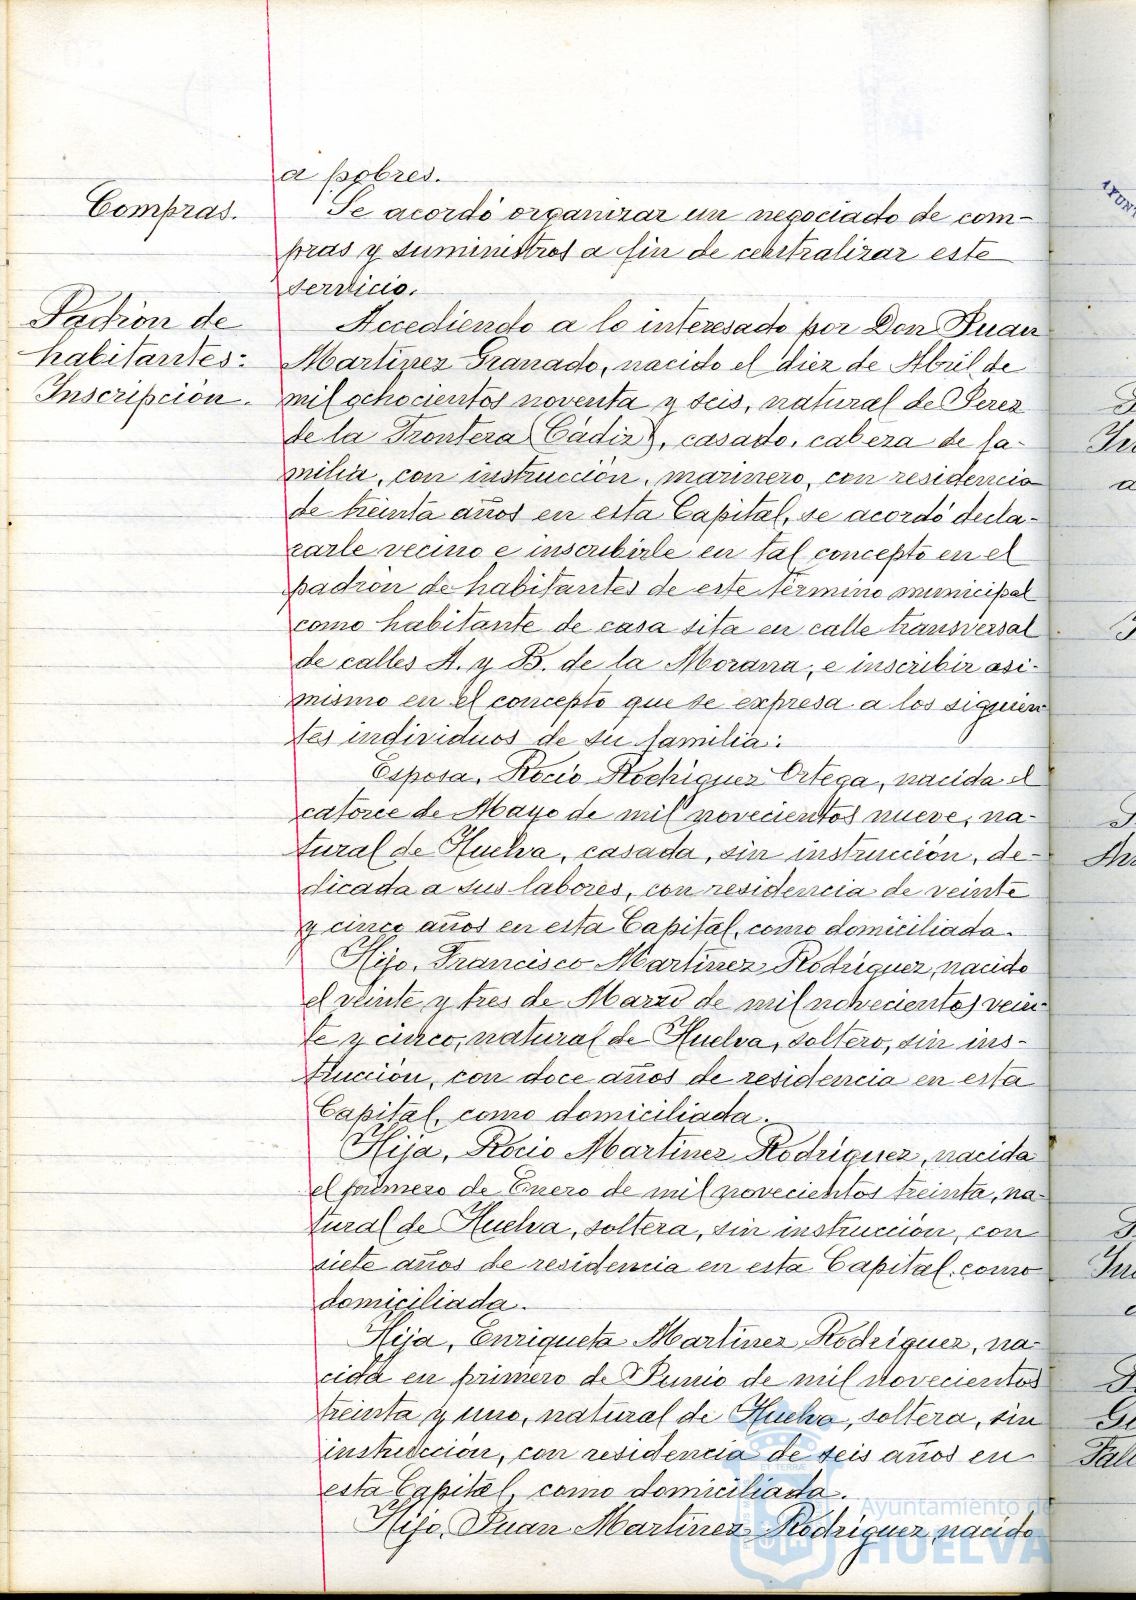 a pobres.
Compras.
Se acordó organizar un negociado de com-
pras y suministros a fin de centralizar este
servicio.
Padrón de
habitantes:
Inscripción.
Accediendo a lo interesado por Don Juan
Martínez Granado, nacido el diez de Abril de
mil ochocientos noventa y seis, natural de Jerez
de la Frontera (Cádiz), casado, cabeza de fa-
milia, con instrucción, marinero, con residencia
de treinta años en esta Capital, se acordó decla-
rarle vecino e inscribirle en tal concepto en el
padrón de habitantes de este término municipal
como habitante de casa sita en calle transversal
de calles A. y B. de la Morana, e inscribir asi-
mismo en el concepto que se expresa a los siguien
tes individuos de su familia:
Esposa, Rocío Rodríguez Ortega, nacida el
catorce de Mayo de mil novecientos nueve, na-
tural de Huelva, casada, sin instrucción, de-
dicada a sus labores, con residencia de veinte
y cinco años en esta Capital, como domiciliada.
Hijo, Francisco Martínez Rodríguez, nacido
el veinte y tres de Marzo de mil novecientos vein-
te y cinco, natural de Huelva, soltero, sin ins-
trucción, con doce años de residencia en esta
Capital, como domiciliada.
Hija, Rocio Martinez Rodríguez, nacida
el primero de Enero de mil novecientos treinta, na-
tural de Huelva, soltera, sin instrucción, con
siete años de residencia en esta Capital, como
domiciliada.
Hija, Enriqueta Martínez Rodríguez, na-
cida en primero de Junio de mil novecientos
treinta y uno, natural de Huelva, soltera, sin
instrucción, con residencia de seis años en
esta Capital, como domiciliada.
Hijo, Juan Martínez Rodríguez, nacido
Ayuntamiento de
HUELVA